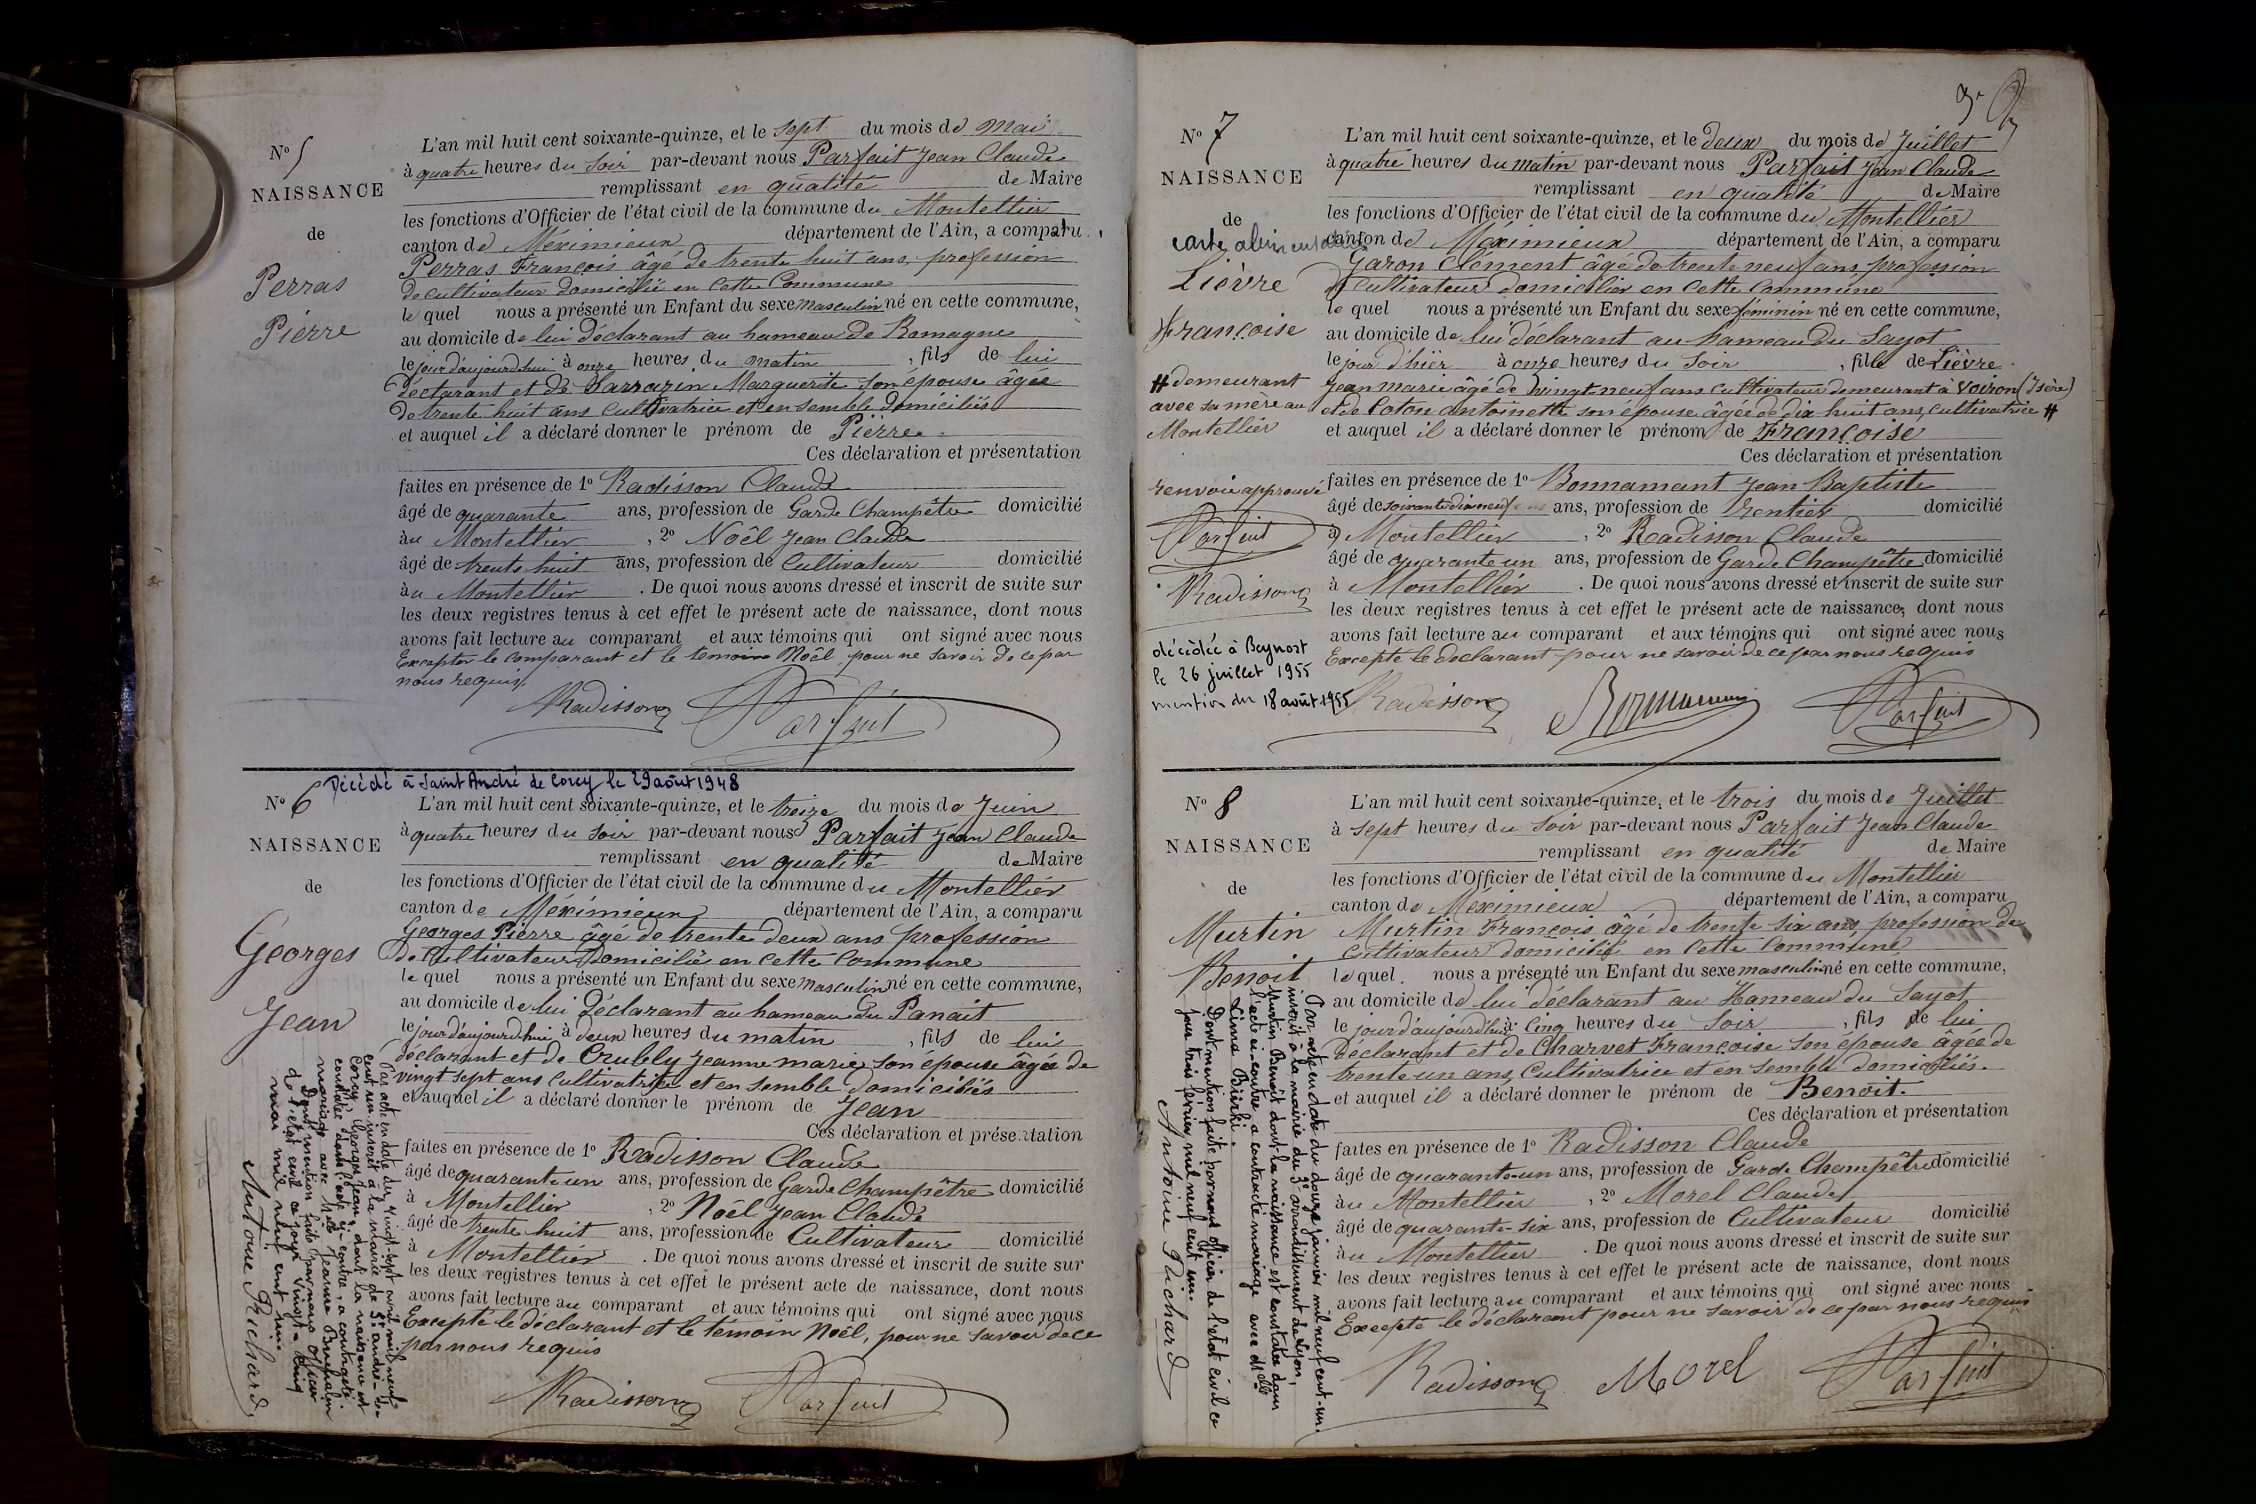 N° 5
NAISSANCE
de
Perras
Pierre
L'an mil huit cent soixante-quinze, et le sept du mois de mai
à quatre heures du soir par-devant nous Parfait Jean Claude
remplissant en qualité de Maire
les fonctions d'Officier de l'état civil de la commune du Montellier
canton de Méximieux département de l'Ain, a comparu
Perras François âgé de trente huit ans, profession
de cultivateur domicilié en cette Commune
le quel nous a présenté un Enfant du sexe masculin né en cette commune,
au domicile de lui déclarant au hameau de Romagne
le jour d'aujourd'hui à onze heures du matin, fils de lui
déclarant et de Sarrazin Marguerite son épouse âgée
de trente huit ans Cultivatrice et ensemble domiciliés
et auquel il a déclaré donner le prénom de Pierre
Ces déclaration et présentation
faites en présence de 1° Radisson Claude
âgé de quarante ans, profession de Garde Champêtre domicilié
au Montellier, 2° Noël Jean Claude
âgé de trente huit ans, profession de Cultivateur domicilié
au Montellier. De quoi nous avons dressé et inscrit de suite sur
les deux registres tenus à cet effet le présent acte de naissance, dont nous
avons fait lecture au comparant et aux témoins qui ont signé avec nous
Excepter le comparant et le temoins Noël pour ne savoir de ce par
nous requis.
Radisson Parfait
Décédé à Saint André de Corcy le 29 août 1948
N° 6
NAISSANCE
de
Georges
Jean
L'an mil huit cent soixante-quinze, et le treize du mois de Juin
à quatre heures du soir par-devant nous Parfait Jean Claude
remplissant en qualité de Maire
les fonctions d'Officier de l'état civil de la commune du Montellier
canton de Méximieux département de l'Ain, a comparu
Georges Pierre âgé de trente deux ans profession
de Cultivateur domicilié en cette Commune
le quel nous a présenté un Enfant du sexe masculin né en cette commune,
au domicile de lui déclarant au hameau du Panait
le jour d'aujourd'hui à deux heures du matin, fils de lui
déclarant et de Crubly Jeanne marie son épouse âgée de
vingt sept ans Cultivatrice et en semble domiciliés
et auquel il a déclaré donner le prénom de Jean
Ces déclaration et présentation
faites en présence de 1° Radisson Claude
âgé de quarante un ans, profession de Garde Champêtre domicilié
à Montellier, 2° Noël Jean Claude
âgé de trente huit ans, profession de Cultivateur domicilié
à Montellier. De quoi nous avons dressé et inscrit de suite sur
les deux registres tenus à cet effet le présent acte de naissance, dont nous
avons fait lecture au comparant et aux témoins qui ont signé avec nous
Excepté le déclarant et le témoin Noël, pour ne savoir de ce
par nous requis
Radisson Parfait
Par acte en date du vingt-sept avril mil neuf
cent un inscrit à la mairie de St andré-de
Corcy, Georges Jean, dont la naissance est
constatée dans l'acte ci-contre, a contracté
mariage avec Melle Jeanne
Dont mention faite par nous officier
de l'état civil ce jour Vingt-cinq
mai mil neuf cent un
Antoine Richard
N° 7
NAISSANCE
de
carte alimentaire
Lièvre
Françoise
# demeurant
avec sa mère au
Montellier
renvoie approuvé
Parfait
Radisson
décédée à Beynost
le 26 juillet 1955
mention du 18 août 1955
L'an mil huit cent soixante-quinze, et le deux du mois de Juillet
à quatre heures du matin par-devant nous Parfait Jean Claude
remplissant en qualité de Maire
les fonctions d'Officier de l'état civil de la commune du Montellier
canton de Méximieux département de l'Ain, a comparu
Garon Clément âgé de trente neuf ans, profession
de Cultivateur domicilié en cette Commune
le quel nous a présenté un Enfant du sexe féminin né en cette commune,
au domicile de lui déclarant au hameau du Sayot
le jour d'hier à onze heures du soir, fille de Lièvre
Jean Marie âgé de Vingt neuf ans Cultivateur demeurant à Voiron (Isère)
et de Coton Antoinette son épouse âgée de dix huit ans, cultivatrice #
et auquel il a déclaré donner le prénom de Françoise
Ces déclaration et présentation
faites en présence de 1° Bonnamant Jean Baptiste
âgé de soixante dix neuf ans, profession de rentier domicilié
à Montellier, 2° Radisson Claude
âgé de quarante un ans, profession de Garde Champêtre domicilié
à Montellier. De quoi nous avons dressé et inscrit de suite sur
les deux registres tenus à cet effet le présent acte de naissance, dont nous
avons fait lecture au comparant et aux témoins qui ont signé avec nous
Excepté le déclarant pour ne savoir de ce par nous requis
Radisson Parfait
N° 8
NAISSANCE
de
Murtin
Benoit
L'an mil huit cent soixante-quinze, et le trois du mois de Juillet
à sept heures du soir par-devant nous Parfait Jean Claude
remplissant en qualité de Maire
les fonctions d'Officier de l'état civil de la commune du Montellier
canton de Méximieux département de l'Ain, a comparu
Murtin François âgé de trente six ans, profession de
Cultivateur domicilié en cette Commune
le quel nous a présenté un Enfant du sexe masculin né en cette commune,
au domicile de lui déclarant au Hameau du Sayot
le jour d'aujourd'hui à cinq heures du soir, fils de lui
déclarant et de Charvet Françoise son épouse âgée de
trente un ans, Cultivatrice et en semble domiciliés
et auquel il a déclaré donner le prénom de Benoit.
Ces déclaration et présentation
faites en présence de 1° Radisson Claude
âgé de quarante-un ans, profession de Garde Champêtre domicilié
au Montellier, 2° Morel Claude
âgé de quarante-six ans, profession de Cultivateur domicilié
au Montellier. De quoi nous avons dressé et inscrit de suite sur
les deux registres tenus à cet effet le présent acte de naissance, dont nous
avons fait lecture au comparant et aux témoins qui ont signé avec nous
Excepté le déclarant pour ne savoir de ce par nous requis
Radisson Morel Parfait
Par acte en date du douze janvier mil neuf cent-un
inscrit à la mairie du 3e arrondissement de Lyon,
Murtin Benoit dont la naissance est constatée dans
l'acte ci-contre a contracté mariage avec Melle
Linna Bürki.
Dont mention faite par nous officier de l'état civil ce
jour trois février mil neuf cent un.
Antoine Richard